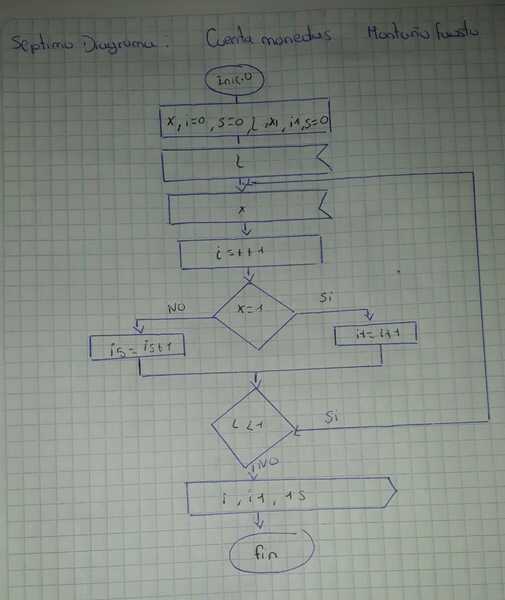 Septimo Diagrama: Cuenta monedas Montaño Fausto
inicio
x, i=0, s=0, L, x1, i1, s=0
L
x
i=++1
x=1
NO
Si
is = is+1
i1=i1+1
L<1
Si
NO
i, i1, 1s
fin